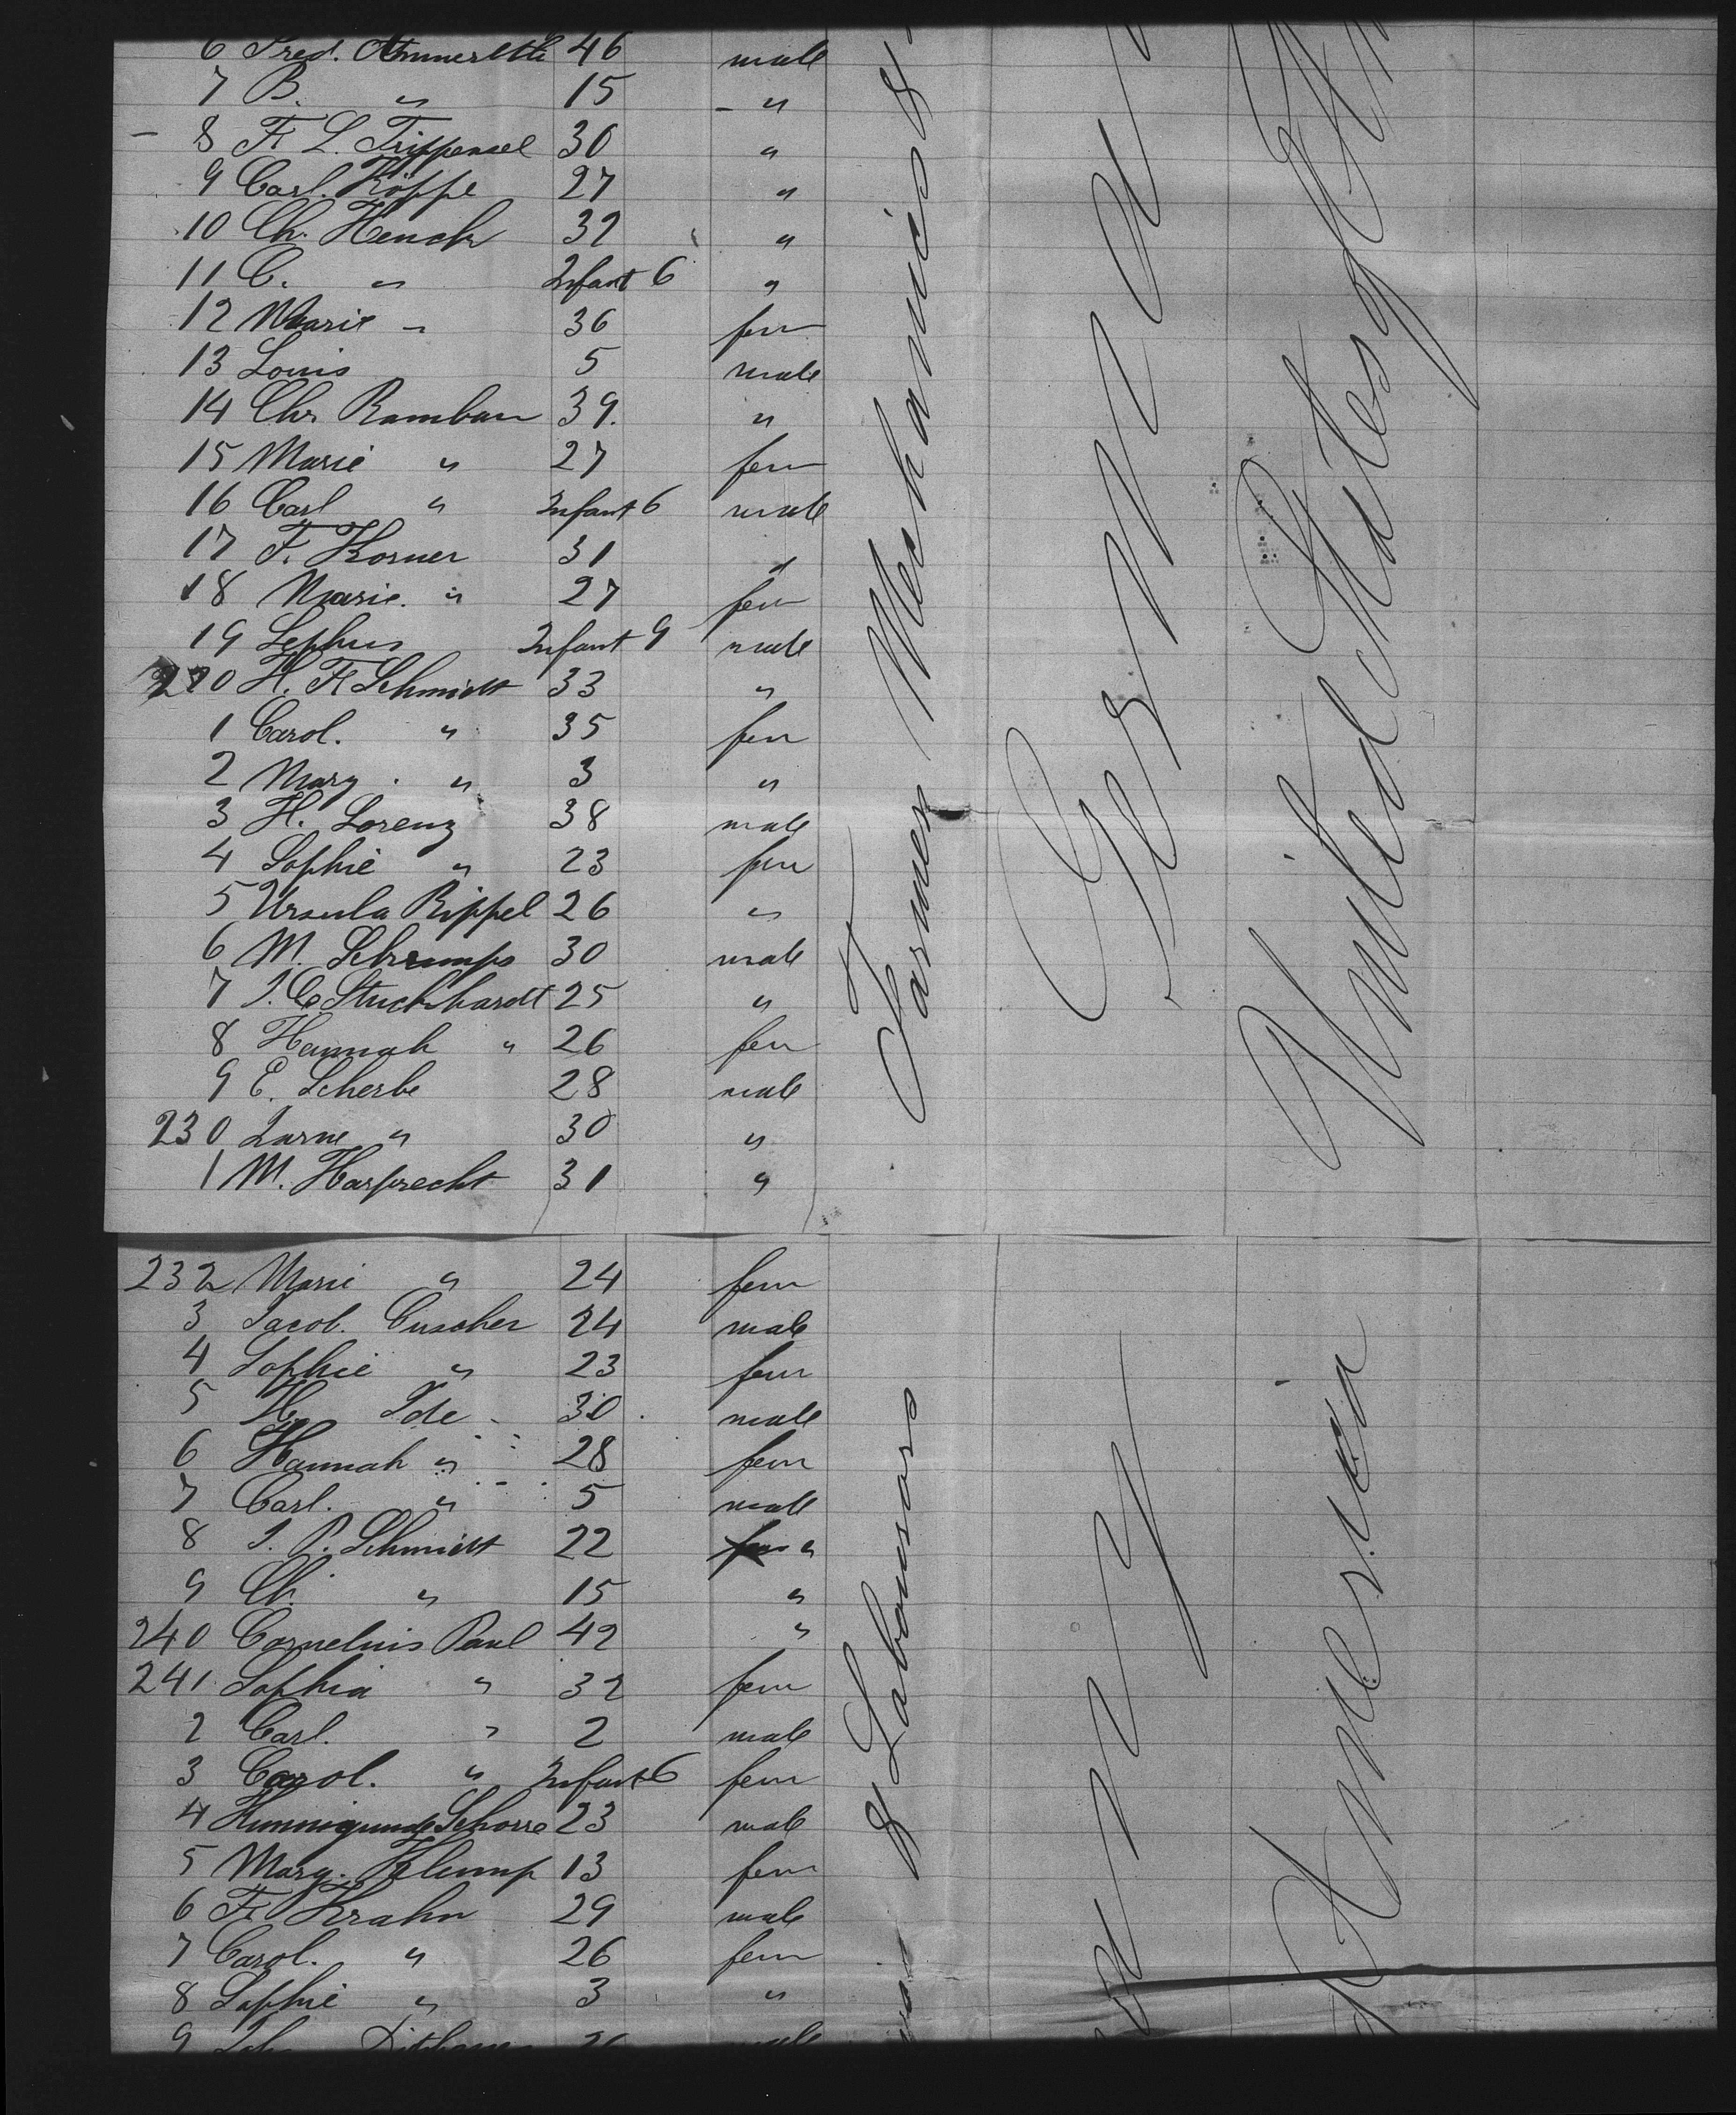 6 Fred. Ammerlthe 46 male
7 B. " 15 - "
- 8 Fr L. Trippensel 30 "
9 Carl. Köppe 27 "
10 Ch. Hench 32 "
11 C. " Infant 6 "
12 Marie " 36 fem
13 Louis 5 male
14 Chr Rambau 39. "
15 Marie " 27 fem
16 Carl " Infant 6 male
17 F. Korner 31 "
18 Marie. " 27 fem
19 Sephus Infant 9 male
220 H. Fr Schmidt 33 "
1 Carol. " 35 fem
2 Mary. " 3 "
3 H. Lorenz 38 male
4 Sophie " 23 fem
5 Ursula Rippel 26 "
6 M. Schrumps 30 male
7 J. C. Stuckhardt 25 "
8 Hannah " 26 fem
9 E. Scherbe 28 male
230 " 30 "
1 M. Harprecht 31 "
232 Marie " 24 fem
3 Jacob. Cuscher 24 male
4 Sophie " 23 fem
5 H. Ide 30 male
6 Hannah " 28 fem
7 Carl. " 5 male
8 J. P. Schmidt 22 "
9 Ch. " 15 "
240 Cornelius Paul 42 "
241 Sophia " 32 fem
2 Carl. " 2 male
3 Carol. " Infant 6 fem
4 Kunnigunde Schorre 23 male
5 Mary. Klump 13 fem
6 Fr. Krahn 29 male
7 Carol. " 26 fem
8 Sophie " 3 "
9 male
Farmer Mechanics &
& Labourers
Germany
United States of America